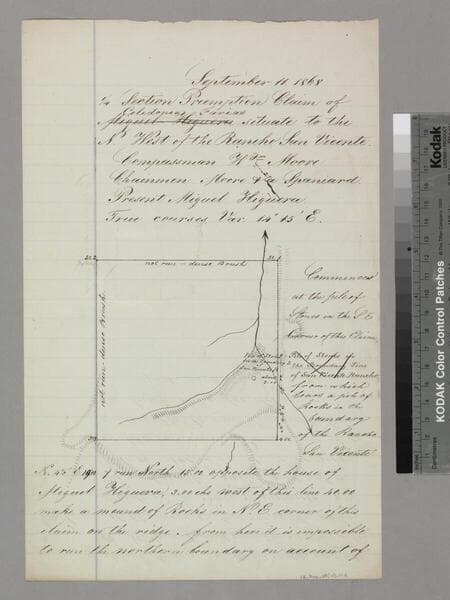 September 11. 1868
1/4 Section Preemption Claim of
Celedonia
Miguel Higuera situate to the
N. West of the Rancho San Vicente.
Compassman Wm Moore
Chainmen Moore & a Spaniard.
Present Miguel Higuera
True courses Var. 14° 15' E.
not run - dense Brush
not run dense Brush
Commenced
at the pile of
Stones in the S E
corner of this Claim,
Pile of Stones in
the Boundary Line
of San Vicente Rancho,
from which
bears a pile of
Rocks in the
boundary
of the Rancho
San Vicente
N. 45° E. run North 15.00 opposite the house of
Miguel Higuera, 3.00 chs west of this line 40.00
make a mound of Rocks in N. E. corner of this
claim on the ridge. from here it is impossible
to run the northern boundary on account of
KODAK Color Control Patches
Kodak